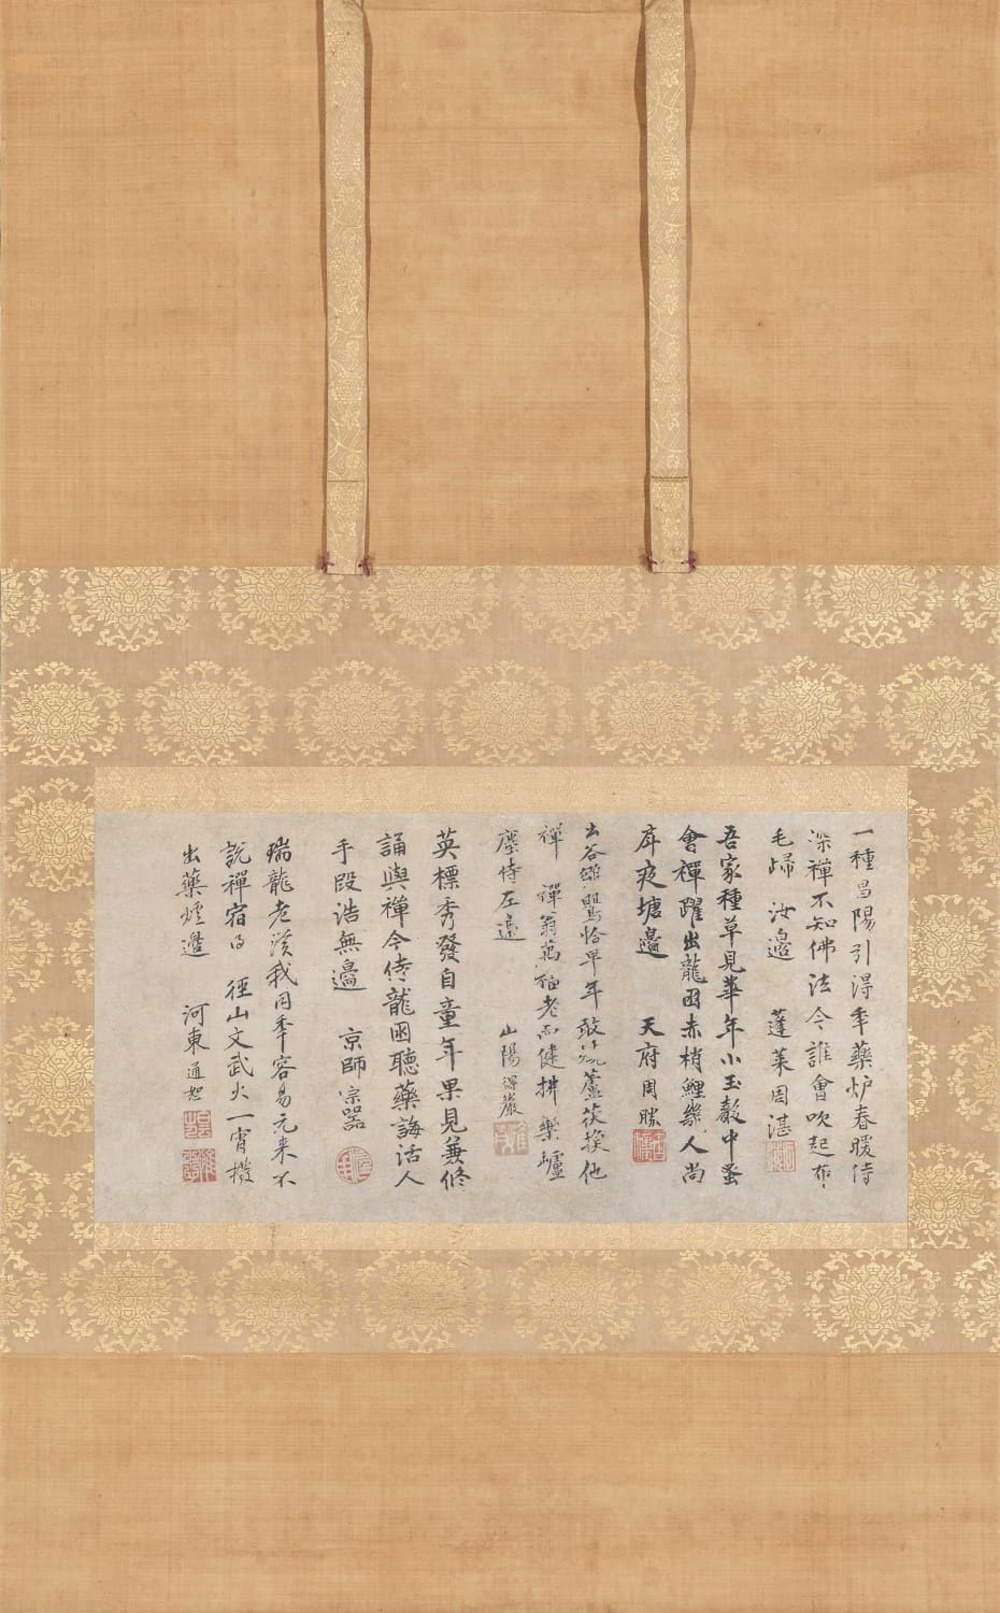 一種昌陽引得年藥炉春暖侍
深禪不知佛法今誰會吹起布
毛歸汝邊 蓬萊周湛
吾家種草見華年小玉聲中蚤
會禪躍出龍困赤梢鯉 人尚
庤夜塘邊 天府周勝
出谷雛鶯恰早年敢 蘆茯換他
禪 禪翁萬福老而健拂藥爐
塵侍左邊 山陽得巖
英標秀發自童年果見兼修
誦與禪今侍龍困聽藥誨活人
手段浩無邊 京師宗器
瑞龍老漢我同年容易元来不
說禪宿問徑山文武火一宵撥
出藥爐邊 河東通恕